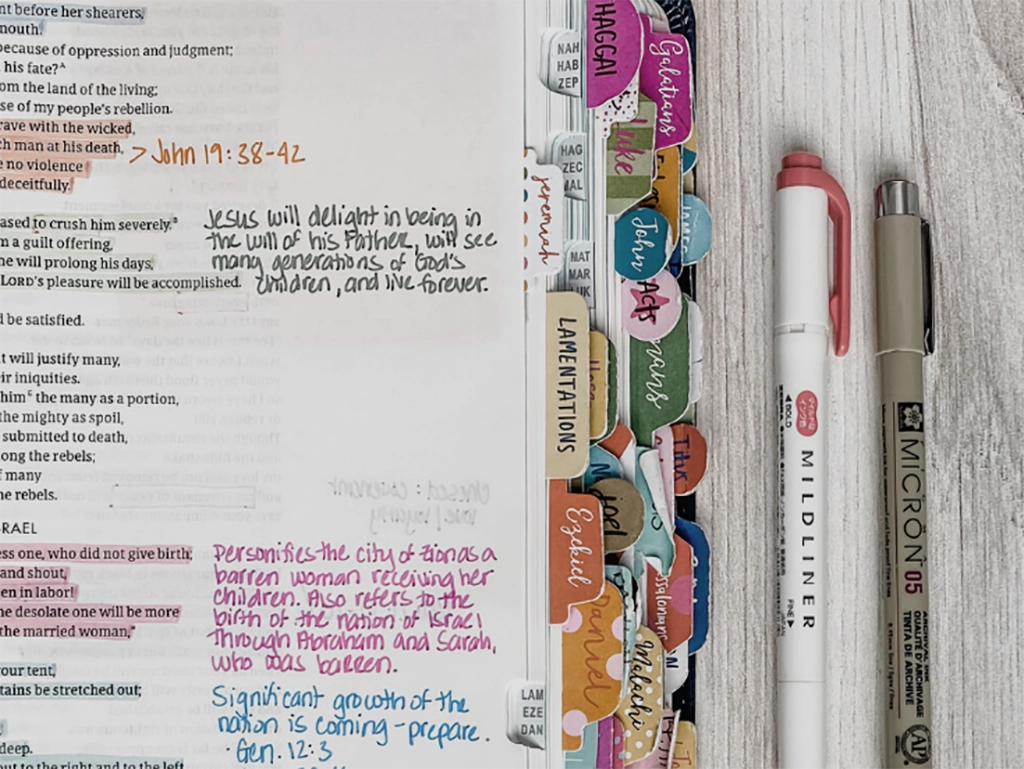 nt before her shearers,
mouth.
because of oppression and judgment;
his fate?ᴬ
om the land of the living;
se of my people's rebellion.
rave with the wicked,
ch man at his death,
e no violence
deceitfully.
> John 19:38-42
ased to crush him severely.ᴮ
m a guilt offering,
he will prolong his days,
LORD's pleasure will be accomplished.
Jesus will delight in being in
the will of his Father, will see
many generations of God's
children, and live forever.
d be satisfied.
t will justify many,
eir iniquities.
himᶜ the many as a portion,
the mighty as spoil,
submitted to death,
ong the rebels;
f many
he rebels.
RAEL
ess one, who did not give birth;
and shout,
en in labor!
he desolate one will be more
the married woman,"
Personifies the city of Zion as a
barren woman receiving her
children. Also refers to the
birth of the nation of Israel
through Abraham and Sarah,
who was barren.
your tent,
tains be stretched out;
deep.
out to the right and to the left
Significant growth of the
nation is coming - prepare.
· Gen. 12:3
NAH
HAB
ZEP
HAG
ZEC
MAL
jeremiah
MAT
MAR
LUK
LAMENTATIONS
Ezekiel
Daniel
LAM
EZE
DAN
HAGGAI
Galatians
Luke
John
James
Acts
mans
Hosea
Titus
Joel
ssalonians
Malachi
◀ BOLD
マイルドな
インク色
MILDLINER
FINE ▶
MICRON 05
ARCHIVAL INK
QUALITÉ D'ARCHIVAGE
TINTA DE ARCHIVE
AP